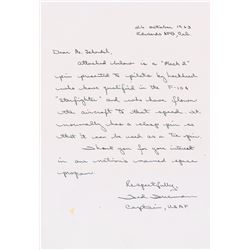 26 October 1963
Edwards AFB, Cal.
Dear Mr.
Attached below is a "Mach 2"
pin presented to pilots by Lockheed
who have qualified in the F-104
"Starfighter" and who have flown
the aircraft to that speed. It
normally has a clasp pin so
that it can be used as a tie pin.
Thank you for your interest
in our nation's manned space
program.
Respectfully,
Ted Freeman
Captain, USAF